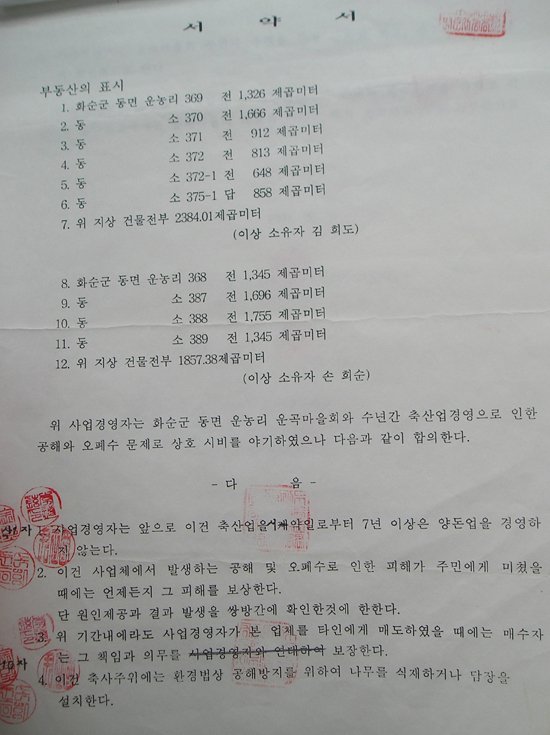 서 약 서
부동산의 표시
1. 화순군 동면 운농리 369 전 1,326 제곱미터
2. 동 소 370 전 1,666 제곱미터
3. 동 소 371 전 912 제곱미터
4. 동 소 372 전 813 제곱미터
5. 동 소 372-1 전 648 제곱미터
6. 동 소 375-1 답 858 제곱미터
7. 위 지상 건물전부 2384.01제곱미터
(이상 소유자 김 희도)
8. 화순군 동면 운농리 368 전 1,345 제곱미터
9. 동 소 387 전 1,696 제곱미터
10. 동 소 388 전 1,755 제곱미터
11. 동 소 389 전 1,345 제곱미터
12. 위 지상 건물전부 1857.38제곱미터
(이상 소유자 손 희순)
위 사업경영자는 화순군 동면 운농리 운곡마을회와 수년간 축산업경영으로 인한
공해와 오폐수 문제로 상호 시비를 야기하였으나 다음과 같이 합의한다.
- 다 음 -
1. 사업경영자는 앞으로 이건 축산업을 서약일로부터 7년 이상은 양돈업을 경영하
지 않는다.
2. 이건 사업체에서 발생하는 공해 및 오폐수로 인한 피해가 주민에게 미쳤을
때에는 언제든지 그 피해를 보상한다.
단 원인제공과 결과 발생을 쌍방간에 확인한것에 한한다.
3. 위 기간내에라도 사업경영자가 본 업체를 타인에게 매도하였을 때에는 매수자
는 그 책임과 의무를 사업경영자와 연대하여 보장한다.
4. 이건 축사주위에는 환경법상 공해방지를 위하여 나무를 식재하거나 담장을
설치한다.